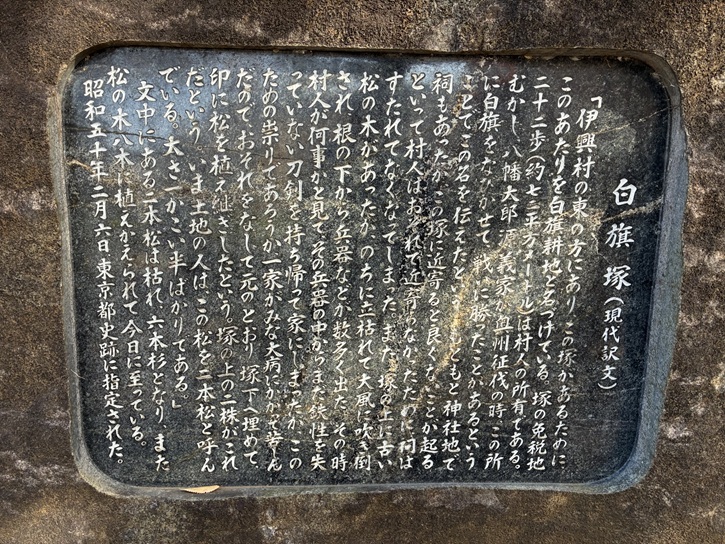 白旗塚（現代訳文）
「伊興村の東の方にあり、この塚があるために
このあたりを白旗耕地と名づけている。塚の免税地
二十二歩（約七三平方メートル）は村人の所有である。
むかし、八幡太郎源義家が奥州征伐の時、この所
に白旗をなびかせて、戦いに勝ったことがあるという
ことでこの名を伝えたという。もともと神社地で
祠もあったが、この塚に近寄ると良くないことが起る
といって村人はおそれて近寄らなかったために祠は
すたれてなくなってしまった。また、塚の上に古い
松の木があったが、のちに立枯れて大風に吹き倒
され、根の下から兵器などが数多く出た。その時
村人が何事かと見てその兵器の中からまだ鉄性を失
っていない刀剣を持ち帰って家にしまったが、この
ための祟りであろうか一家がみな大病にかかって苦しん
だので、おそれをなして元のとおり塚下へ埋めて、
印に松を植え継ぎしたという。塚の上の二株がこれ
だという。いま土地の人は、この松を二本松と呼ん
でいる。大さ一かこい半ばかりである。」
文中にある二本松は枯れ、六本杉となり、また
松の木八本に植えかえられて今日に至っている。
昭和五十年二月六日東京都史跡に指定された。